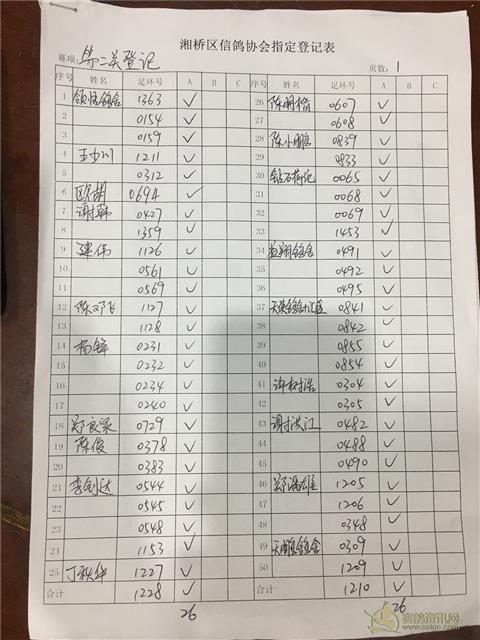 湘桥区信鸽协会指定登记表
赛项: 第二关登记 页数: 1
序号 姓名 足环号 A B C 序号 姓名 足环号 A B C
1 领悟鸽舍 1363 ✓ 26 陈明楷 0607 ✓
2 0154 ✓ 27 0608 ✓
3 0159 ✓ 28 陈小鹏 0839 ✓
4 王小川 1211 ✓ 29 0833 ✓
5 0312 ✓ 30 钻石荷花 0065 ✓
6 欧胡 0694 ✓ 31 0068 ✓
7 谢韩 0427 ✓ 32 0069 ✓
8 1359 ✓ 33 1453 ✓
9 建伟 1126 ✓ 34 益翔鸽舍 0491 ✓
10 0561 ✓ 35 0492 ✓
11 0569 ✓ 36 0495 ✓
12 陈邓飞 1127 ✓ 37 天使鸽舍 0841 ✓
13 1128 ✓ 38 0842 ✓
14 杨锋 0231 ✓ 39 0855 ✓
15 0232 ✓ 40 0854 ✓
16 0234 ✓ 41 许树浩 0304 ✓
17 0240 ✓ 42 0305 ✓
18 郑良梁 0729 ✓ 43 谢洪江 0482 ✓
19 陈俊 0378 ✓ 44 0488 ✓
20 0383 ✓ 45 0490 ✓
21 李创达 0544 ✓ 46 郑鸿雄 1205 ✓
22 0545 ✓ 47 1206 ✓
23 0548 ✓ 48 0348 ✓
24 1153 ✓ 49 天朗鸽舍 0309 ✓
25 丁秋华 1227 ✓ 50 1209 ✓
合计 1228 ✓ 合计 1210 ✓
26 26
赛鸽资讯网
www.saige.com